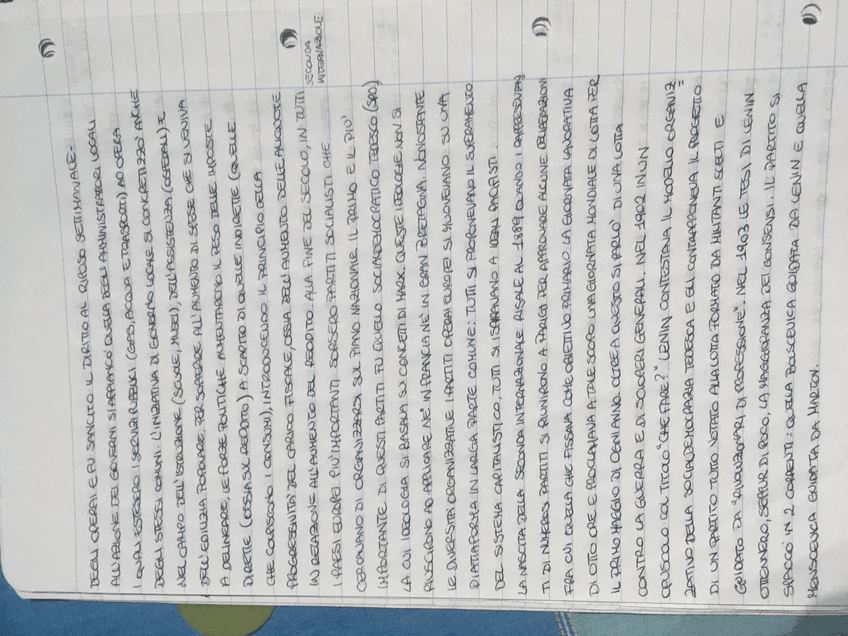 DEGLI OPERAI E FU SANCITO IL DIRITTO AL RIPOSO SETTIMANALE.
ALL'AZIONE DEI GOVERNI SI AFFIANCÒ QUELLA DEGLI AMMINISTRATORI LOCALI
I QUALI ESTESERO I SERVIZI PUBBLICI (GAS, ACQUA E TRASPORTI) AD OPERA
DEGLI STESSI COMUNI. L'INIZIATIVA DI GOVERNO LOCALE SI CONCRETIZZÒ ANCHE
NEL CAMPO DELL'ISTRUZIONE (SCUOLE, MUSEI), DELL'ASSISTENZA (OSPEDALI) E
DELL'EDILIZIA POPOLARE. PER SOPPERIRE ALL'AUMENTO DI SPESE CHE SI VENIVA
A DELINEARE, LE FORZE POLITICHE AUMENTARONO IL PESO DELLE IMPOSTE
DIRETTE (OSSIA SUL REDDITO) A SCAPITO DI QUELLE INDIRETTE (QUELLE
CHE COLPISCONO I CONSUMI), INTRODUCENDO IL PRINCIPIO DELLA
PROGRESSIVITÀ DEL CARICO FISCALE, OSSIA DELL'AUMENTO DELLE ALIQUOTE
IN RELAZIONE ALL'AUMENTO DEL REDDITO. ALLA FINE DEL SECOLO, IN TUTTI
SECONDA
INTERNAZIONALE
I PAESI EUROPEI PIÙ IMPORTANTI SORSERO PARTITI SOCIALISTI CHE
CERCAVANO DI ORGANIZZARSI SUL PIANO NAZIONALE. IL PRIMO E IL PIÙ
IMPORTANTE DI QUESTI PARTITI FU QUELLO SOCIALDEMOCRATICO TEDESCO (SPD)
LA CUI IDEOLOGIA SI BASAVA SUI CONCETTI DI MARX. QUESTE IDEOLOGIE NON SI
RIUSCIRONO AD APPLICARE NÉ IN FRANCIA NÉ IN GRAN BRETAGNA. NONOSTANTE
LE DIVERSITÀ ORGANIZZATIVE I PARTITI OPERAI EUROPEI SI MUOVEVANO SU UNA
PIATTAFORMA IN LARGA PARTE COMUNE: TUTTI SI PROPONEVANO IL SUPERAMENTO
DEL SISTEMA CAPITALISTICO, TUTTI SI ISPIRAVANO A IDEALI PACIFISTI.
LA NASCITA DELLA SECONDA INTERNAZIONALE RISALE AL 1889 QUANDO I RAPPRESENTAN
TI DI NUMEROSI PARTITI SI RIUNIRONO A PARIGI PER APPROVARE ALCUNE DELIBERAZIONI
FRA CUI QUELLA CHE FISSAVA COME OBIETTIVO PRIMARIO LA GIORNATA LAVORATIVA
DI OTTO ORE E PROCLAMAVA A TALE SCOPO UNA GIORNATA MONDIALE DI LOTTA PER
IL PRIMO MAGGIO DI OGNI ANNO. OLTRE A QUESTO SI PARLÒ DI UNA LOTTA
CONTRO LA GUERRA E DI SCIOPERI GENERALI. NEL 1902 IN UN
OPUSCOLO COL TITOLO "CHE FARE?" LENIN CONTESTAVA IL MODELLO ORGANIZ=
ZATIVO DELLA SOCIALDEMOCRAZIA TEDESCA E GLI CONTRAPPONEVA IL PROGETTO
DI UN PARTITO TUTTO VOTATO ALLA LOTTA FORMATO DA MILITANTI SCELTI E
GUIDATO DA "RIVOLUZIONARI DI PROFESSIONE". NEL 1903 LE TESI DI LENIN
OTTENNERO, SEPPUR DI POCO, LA MAGGIORANZA DEI CONSENSI. IL PARTITO SI
SPACCÒ IN 2 CORRENTI: QUELLA BOLSCEVICA GUIDATA DA LENIN E QUELLA
MENSCEVICA GUIDATA DA MARTOV.